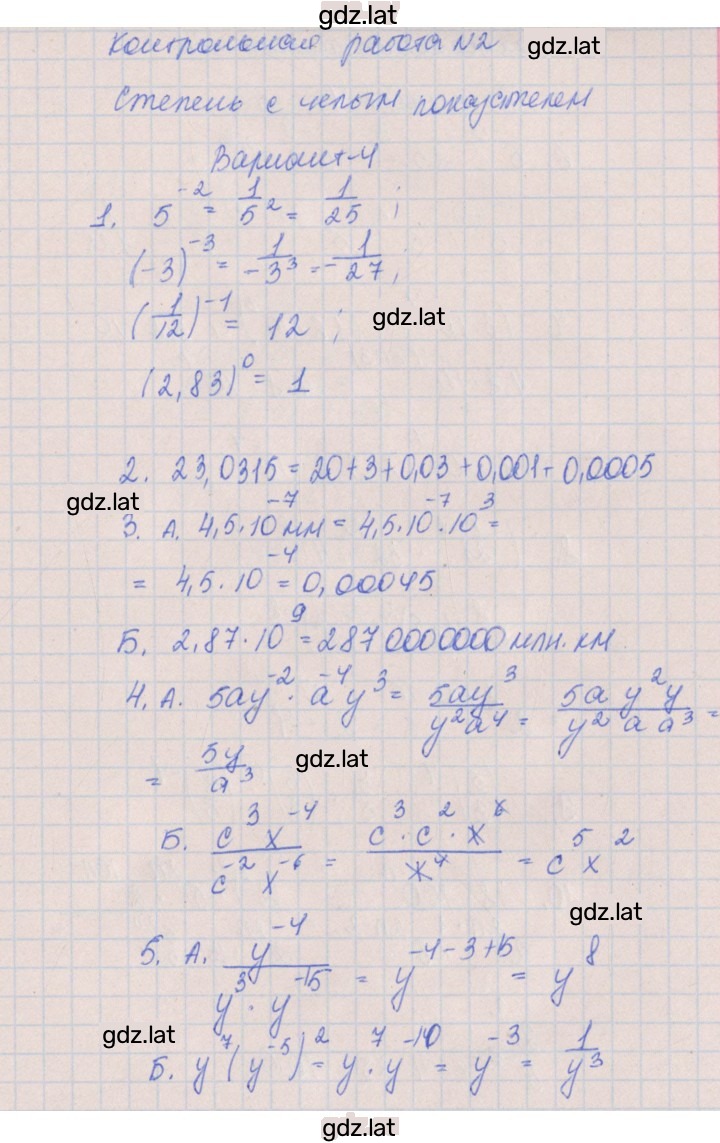 gdz.lat
Контрольная работа №2
gdz.lat
Степень с целым показателем
Вариант-4
1. 5⁻² = 1/5² = 1/25 ;
(-3)⁻³ = 1/-3³ = -1/27 ;
(1/12)⁻¹ = 12 ;
gdz.lat
(2,83)⁰ = 1
2. 23,0315 = 20+3+0,03+0,001+0,0005
gdz.lat
3. А. 4,5·10⁻⁷ мм = 4,5·10⁻⁷·10³ =
= 4,5·10⁻⁴ = 0,00045
Б. 2,87·10⁹ = 2870000000 млн. км
4. А. 5ay⁻² · a⁻⁴y³ = 5ay³/y²a⁴ = 5a y²y/y² a a³ =
= 5y/a³
gdz.lat
Б. c³x⁻⁴/c⁻²x⁻⁶ = c³·c²·x⁶/x⁴ = c⁵x²
gdz.lat
5. А. y⁻⁴/y³·y⁻¹⁵ = y⁻⁴⁻³⁺¹⁵ = y⁸
gdz.lat
Б. y⁷(y⁻⁵)² = y⁷·y⁻¹⁰ = y⁻³ = 1/y³
gdz.lat